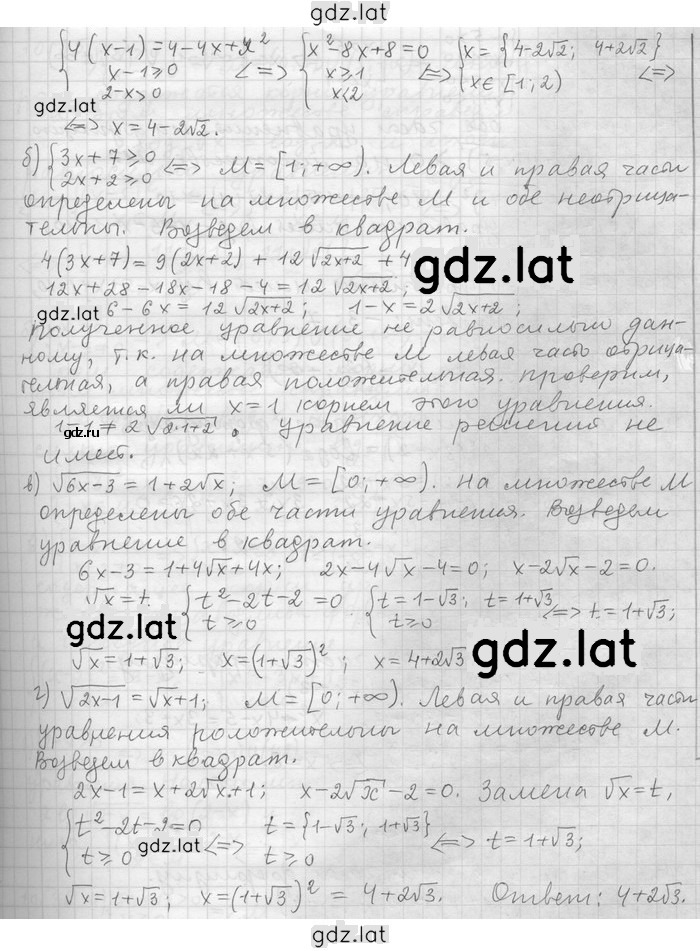 gdz.lat
{4(x-1)=4-4x+x² {x²-8x+8=0 {x={4-2√2; 4+2√2}
x-1≥0 <=> x≥1 <=> x∈[1; 2) <=>
2-x>0 x<2
gdz.lat
<=> x=4-2√2.
б) {3x+7≥0 <=> M=[1;+∞). Левая и правая части
2x+2≥0
определены на множестве M и обе неотрица-
тельны. Возведем в квадрат.
4(3x+7)=9(2x+2)+12√2x+2 +4
gdz.lat
12x+28-18x-18-4=12√2x+2;
gdz.lat
6-6x=12√2x+2; 1-x=2√2x+2;
Полученное уравнение не равносильно дан-
ному, т.к. на множестве M левая часть отрица-
тельная, а правая положительная. Проверим,
является ли x=1 корнем этого уравнения.
1-1≠2√2·1+2. Уравнение решения не
gdz.ru
имеет.
в) √6x-3=1+2√x; M=[0;+∞). На множестве M
определены обе части уравнения. Возведем
уравнение в квадрат.
6x-3=1+4√x+4x; 2x-4√x-4=0; x-2√x-2=0.
√x=t. {t²-2t-2=0 {t=1-√3; t=1+√3 <=> t=1+√3;
t≥0 t≥0
gdz.lat
√x=1+√3; x=(1+√3)²; x=4+2√3
г) √2x-1=√x+1; M=[0;+∞). Левая и правая части
уравнения положительны на множестве M.
Возведем в квадрат.
2x-1=x+2√x+1; x-2√x-2=0. Замена √x=t,
{t²-2t-2=0 t={1-√3; 1+√3} <=> t=1+√3;
t≥0 gdz.lat t≥0
√x=1+√3; x=(1+√3)²=4+2√3. Ответ: 4+2√3.
gdz.lat